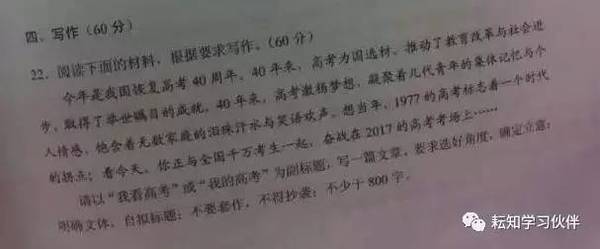 四、写作(60分)
22. 阅读下面的材料,根据要求写作。(60分)
今年是我国恢复高考40周年。40年来,高考为国选材,推动了教育改革与社会进
步,取得了举世瞩目的成就。40年来,高考激扬梦想,凝聚着几代青年的集体记忆与个
人情感,饱含着无数家庭的泪珠汗水与笑语欢声。想当年,1977的高考标志着一个时代
的拐点;看今天,你正与全国千万考生一起,奋战在2017的高考考场上……
请以“我看高考”或“我的高考”为副标题,写一篇文章。要求选好角度,确定立意;
明确文体,自拟标题;不要套作,不得抄袭;不少于800字。
耘知学习伙伴